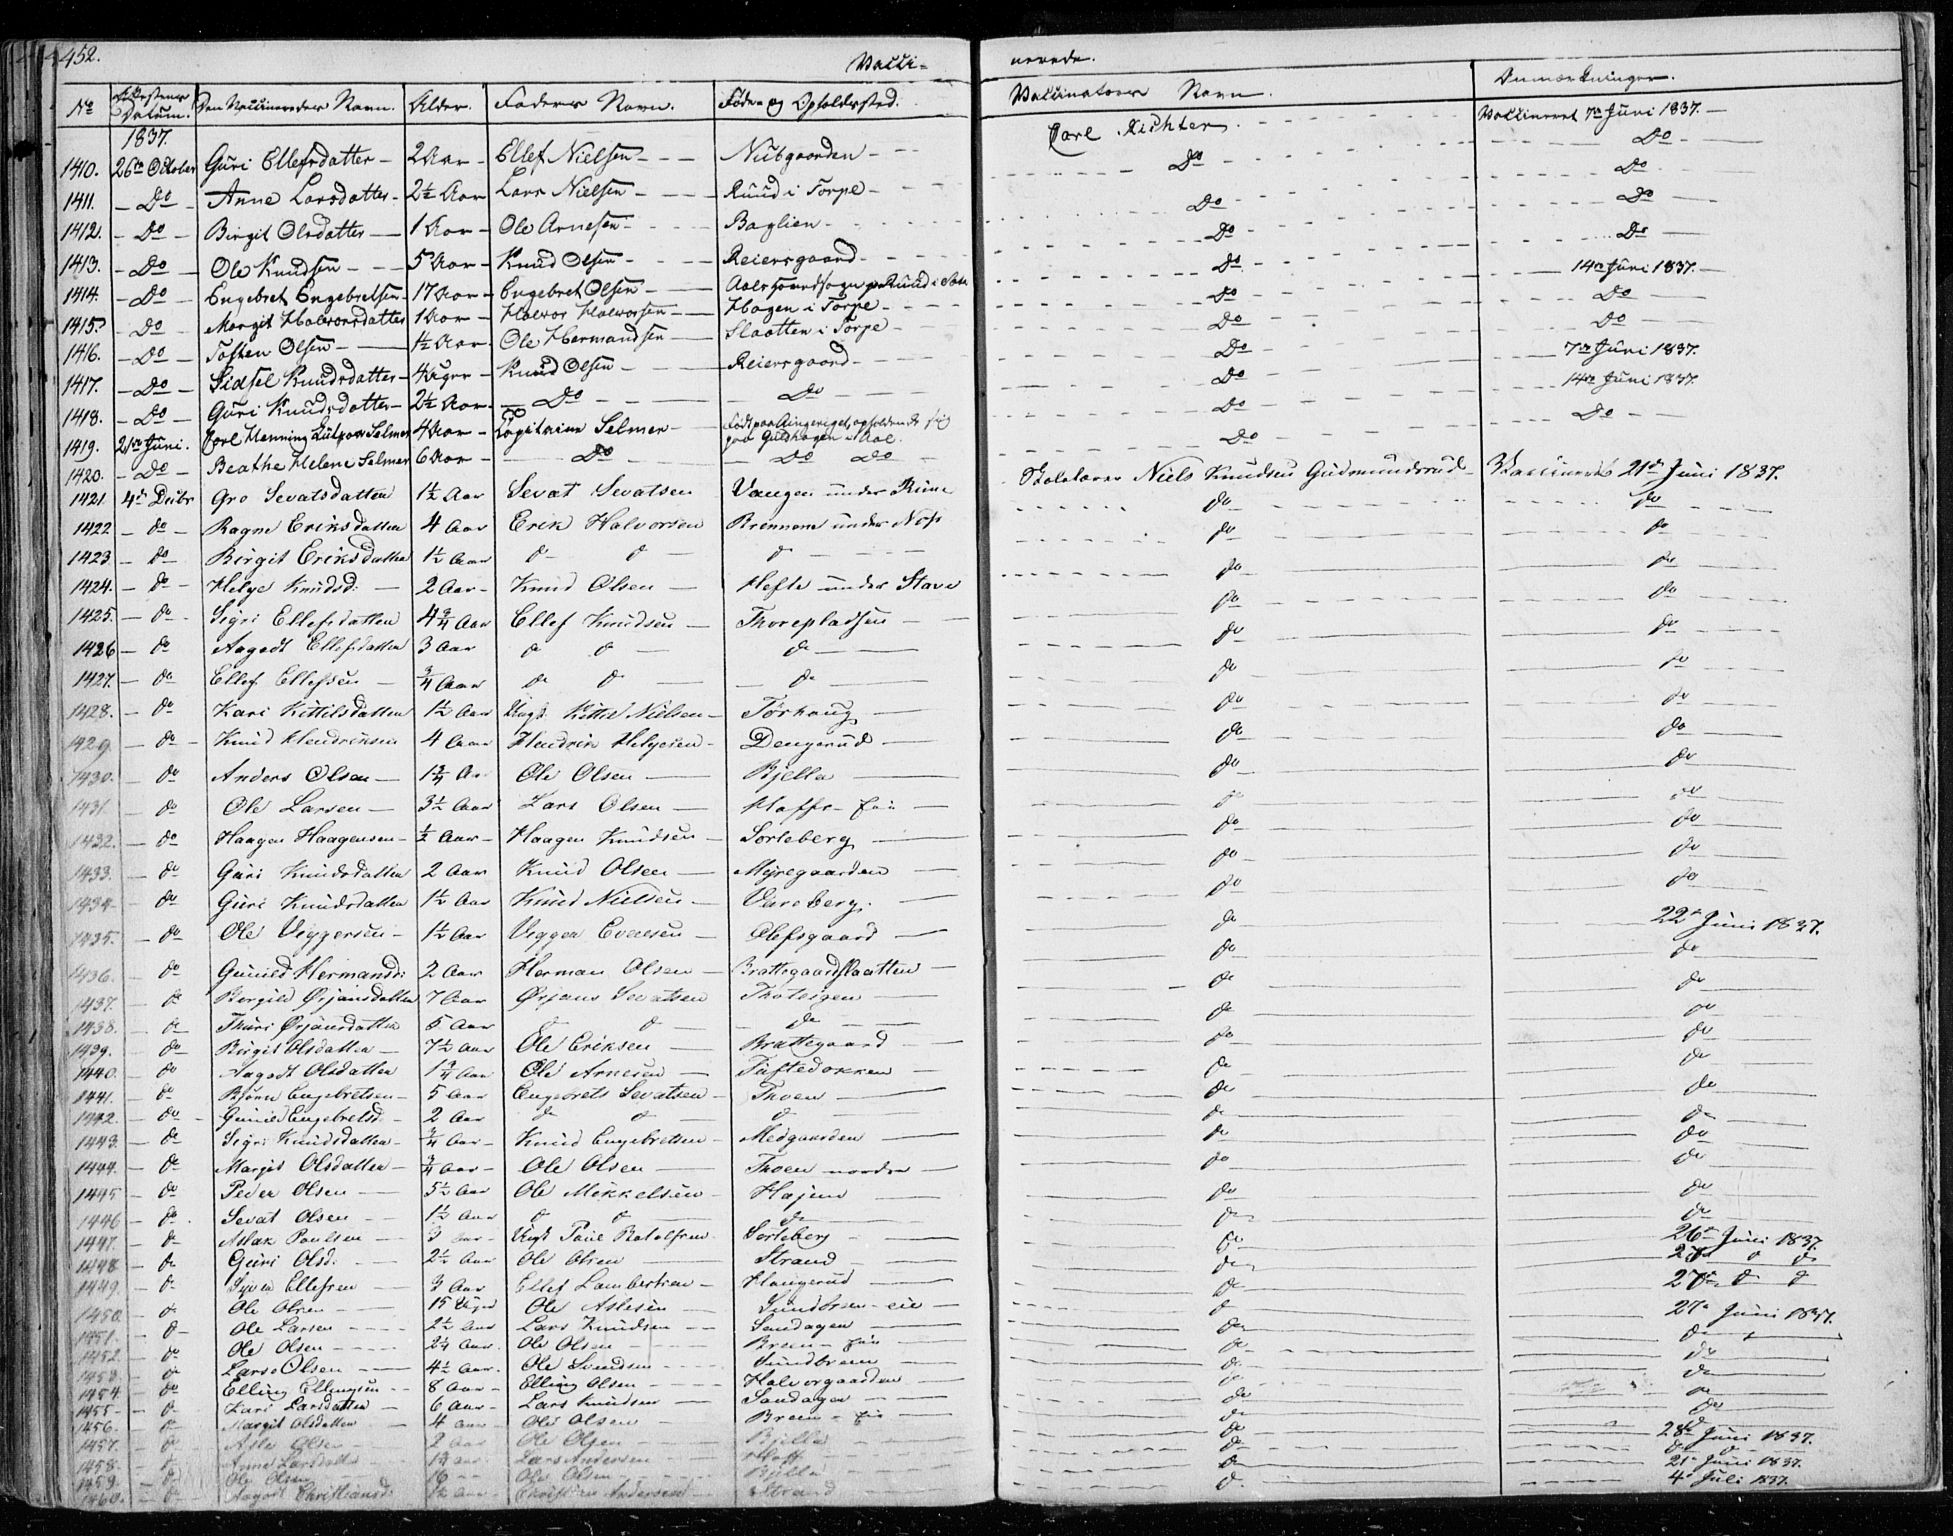 452.
Vacci-
nerede.
No Attestens Datum. Den Vaccineredes Navn. Alder. Faders Navn. Føde- og Opholdssted. Vaccinateurs Navn. Anmærkninger.
1837.
1410. 26de October Guri Ellefsdatter - 2 Aar - Ellef Nielsen - Nubgaarden - Carl Richter Vaccineret 7de Juni 1837.
1411. - Do - Anne Larsdatter - 2½ Aar Lars Nielsen - Ruud i Torpe - Do Do
1412. - Do - Birgit Olsdatter - 1 Aar - Ole Arnesen - Baglien - Do Do
1413. - Do - Ole Knudsen - 5 Aar - Knud Olsen - Reiersgaard - Do Do
1414. - Do - Engebret Engebretsen - 17 Aar - Engebret Olsen - Ruud i Do 14de Juni 1837.
1415. - Do - Margit Halvorsdatter 1 Aar - Halvor Halvorsen - Hagen i Torpe - Do Do
1416. - Do - Tosten Olsen - 1½ Aar - Ole Hermandsen - Slaatten i Torpe - Do Do
1417. - Do - Sidsel Knudsdatter - 4 Uger - Knud Olsen - Reiersgaard - Do 7de Juni 1837.
1418. - Do - Guri Knudsdatter - 2½ Aar - Do - Do Do 14de Juni 1837.
1419. 21de Juni. Carl Henning Lützow Selmer 4 Aar - Capitaine Selmer - Født paa Ringeriget, opholdende sig paa Guldhagen i Aal. Do Do
1420. - Do - Beathe Helene Selmer 6 Aar - Do - Do Do Do
1421 4de Decbr Gro Sevatsdatter 1½ Aar Sevat Sevatsen Vangen under Skolelærer Niels Knudsen Gudmundsrud Vaccineret 21de Juni 1837.
1422 - do - Ragne Eriksdatter 4 Aar Erik Halvorsen Brennene under do do
1423 - do - Birgit Eriksdatter 1½ Aar do do do do do
1424. - do - Helge Knudsd: 2 Aar - Knud Olsen - Hefte under Stave do do
1425. - do - Sigri Ellefsdatter 4¾ Aar Ellef Knudsen - Thorepladsen do do
1426 - do Aagodt Ellefsdatter 3 Aar do do do do do
1427. - do - Ellef Ellefsen - ¾ Aar do do do do do
1428. - do Kari Kittilsdatter 1½ Aar Ungk. Kittil Nielsen - Torhaug do do
1429. - do - Knud Hendriksen 4 Aar Hendrik Helgesen - Dengerud do do
1430. - do Anders Olsen - 1¾ Aar Ole Olsen - Bjella do do
1431. - do Ole Larsen - 3½ Aar Lars Olsen - do do
1432. - do Haagen Haagensen - ½ Aar - Haagen Knudsen - Sorteberg do do
1433. - do Guri Knudsdatter 2 Aar Knud Olsen - Myregaarden do do
1434. - do Guri Knudsdatter 1½ Aar Knud Nielsen - Vareberg. do do
1435. - do Ole Viggersen - 1½ Aar Vigger Evensen - Olefsgaard do 22de Juni 1837.
1436. - do Gunild Hermansd: 2 Aar Herman Olsen - Brattegaardslaatten do do
1437. - do Bergild Ørjansdatter 7 Aar Ørjans Sevatsen Thoteigen do do
1438. - do Thuri Ørjansdatter 5 Aar do do do do do
1439. - do Birgit Olsdatter - 7½ Aar Ole Eriksen - Brattegaard do do
1440. - do Aagodt Olsdatter 1¾ Aar Ole Arnesen - Tuftedokken do do
1441. - do Bjørn Engebretsen - 5 Aar Engebrets Sevatsen - Thoen do do
1442. - do Gunild Engebretsd. 2 Aar do do do do do
1443 - do Sigri Knudsdatter - ¾ Aar - Knud Engebretsen - Medgaarden do do
1444. - do Margit Olsdatter - ¾ Aar - Ole Olsen - Thoen nordre do do
1445 - do Peder Olsen - 5½ Aar Ole Mikkelsen - do do
1446 - do Sevat Olsen 1½ Aar do do do do do
1447. - do Aslak Poulsen - 3 Aar - Ungk Poul Botolfsen Sorteberg do 26de Juni 1837.
1448 - do Guri Olsd: 2½ Aar Ole Olsen - Strand do do do
1449. - do Ellefsen - 3 Aar Ellef Lambertsen - Haugerud do 27de do do
1450. do Ole Olsen - 15 Uger Ole Aslesen Sundbreen - eie do 27de Juni 1837.
1451. - do Ole Larsen - 2½ Aar Lars Knudsen - Sendagen do do
1452 do Ole Olsen - 2¼ Aar Ole Olsen - Breen - eie do do
1453. - do Lars Olsen - 4½ Aar. Ole Svendsen - Sundbreen do do
1454 - do Elling Ellingsen - 8 Aar - Elling Olsen - Halvorgaarden do do
1455 - do Kari Larsdatter - 6 Aar - Lars Knudsen Sondagen do do
1456. - do Margit Olsdatter 4 Aar - Ole Olsen Breen - eie do do
1457. - do Asle Olsen - 2 Aar Ole Olsen Bjella do 28de Juni 1837.
1458. - do Anne Larsdatter 1¾ Aar Lars Andersen Hoff do do
1459. - do Ole Olsen 16 Ole Olsen Bjella do 21de Juni 1837.
1460. - do Aagodt Christiansd. 1½ Aar - Christian Andersen Strand do 4de Juli 1837.